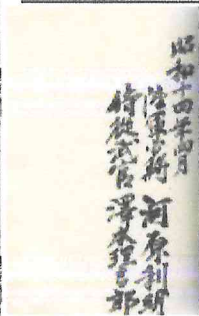 昭和十四年四月
陸軍少将 河原利明
侍從武官 澤本理吉郎